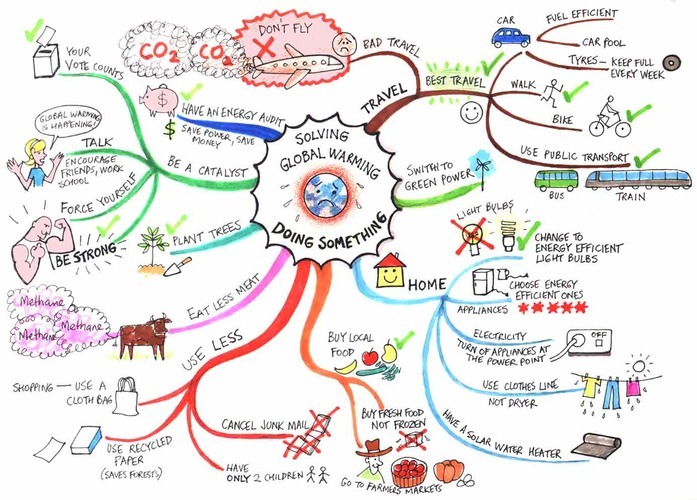 SOLVING
GLOBAL WARMING
DOING SOMETHING
TRAVEL
BAD TRAVEL
DON'T FLY
CO2
CO2
BEST TRAVEL
CAR
FUEL EFFICIENT
CAR POOL
TYRES - KEEP FULL
EVERY WEEK
WALK
BIKE
USE PUBLIC TRANSPORT
BUS
TRAIN
SWITCH TO
GREEN POWER
HOME
LIGHT BULBS
CHANGE TO
ENERGY EFFICIENT
LIGHT BULBS
APPLIANCES
CHOOSE ENERGY
EFFICIENT ONES
ELECTRICITY
TURN OF APPLIANCES AT
THE POWER POINT
OFF
USE CLOTHES LINE
NOT DRYER
HAVE A SOLAR WATER HEATER
BUY LOCAL
FOOD
BUY FRESH FOOD
NOT FROZEN
GO TO FARMERS MARKETS
USE LESS
CANCEL JUNK MAIL
HAVE
ONLY 2 CHILDREN
USE RECYCLED
PAPER
(SAVES FORESTS)
SHOPPING — USE A
CLOTH BAG
EAT LESS MEAT
Methane
Methane
Methane
PLANT TREES
BE A CATALYST
YOUR
VOTE COUNTS
TALK
ENCOURAGE
FRIENDS, WORK
SCHOOL
GLOBAL WARMING
IS HAPPENING!
FORCE YOURSELF
BE STRONG
HAVE AN ENERGY AUDIT
SAVE POWER, SAVE
MONEY
$